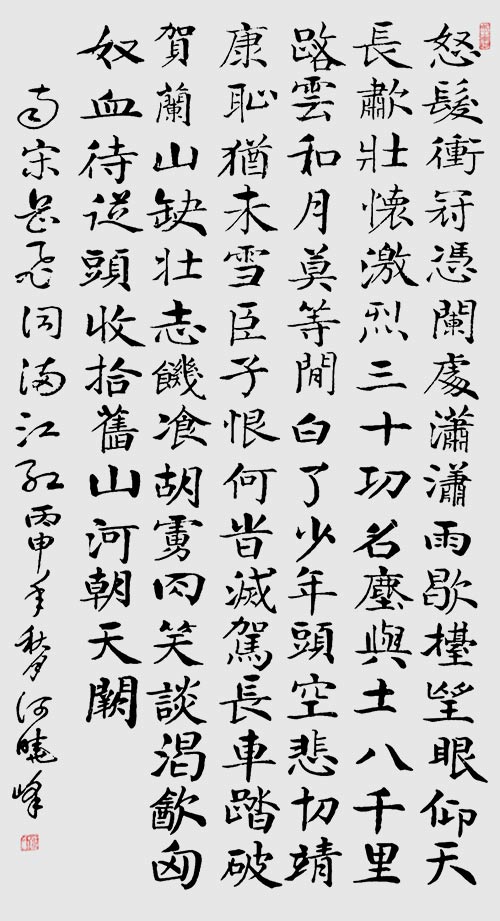 怒髮衝冠憑闌處瀟瀟雨歇擡望眼仰天
長歗壯懷激烈三十功名塵與土八千里
路雲和月莫等閒白了少年頭空悲切靖
康恥猶未雪臣子恨何旹滅駕長車踏破
賀蘭山缺壯志饑飡胡虜肉笑談渴㱃匈
奴血待從頭收拾舊山河朝天闕
南宋岳飛詞滿江紅丙申年秋月何曉峰